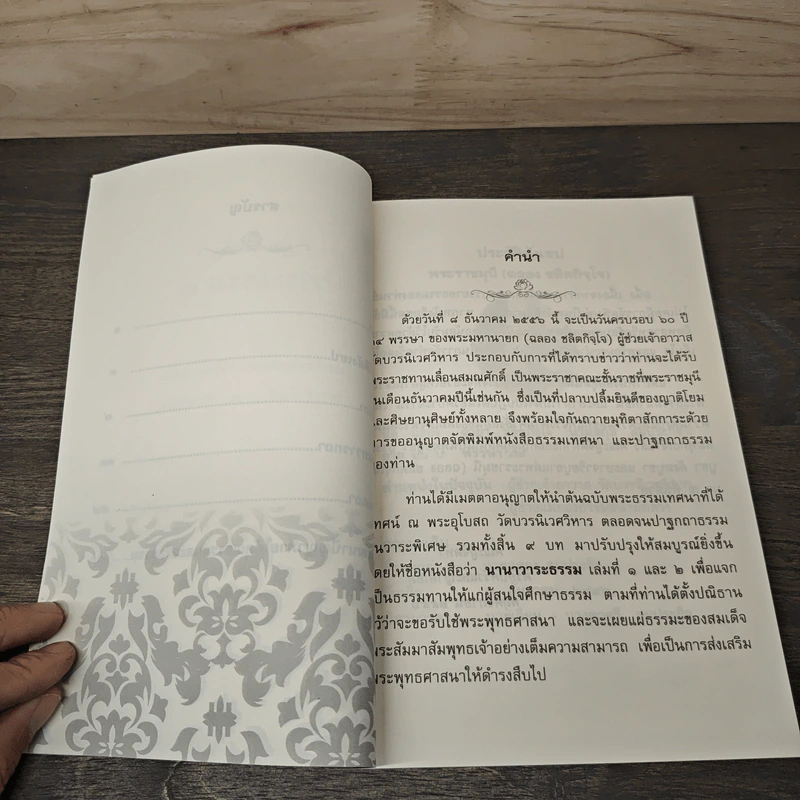 คำนำ
ด้วยวันที่ ๘ ธันวาคม ๒๕๕๖ นี้ จะเป็นวันครบรอบ ๖๐ ปี
๔ พรรษา ของพระมหานายก (ฉลอง ชลิตกิจฺโจ) ผู้ช่วยเจ้าอาวาส
วัดบวรนิเวศวิหาร ประกอบกับการที่ได้ทราบข่าวว่าท่านจะได้รับ
พระราชทานเลื่อนสมณศักดิ์ เป็นพระราชาคณะชั้นราชที่พระราชมุนี
ในเดือนธันวาคมปีนี้เช่นกัน ซึ่งเป็นที่ปลาบปลื้มยินดีของญาติโยม
และศิษยานุศิษย์ทั้งหลาย จึงพร้อมใจกันถวายมุทิตาสักการะด้วย
การขออนุญาตจัดพิมพ์หนังสือธรรมเทศนา และปาฐกถาธรรม
ของท่าน
ท่านได้มีเมตตาอนุญาตให้นำต้นฉบับพระธรรมเทศนาที่ได้
เทศน์ ณ พระอุโบสถ วัดบวรนิเวศวิหาร ตลอดจนปาฐกถาธรรม
ในวาระพิเศษ รวมทั้งสิ้น ๙ บท มาปรับปรุงให้สมบูรณ์ยิ่งขึ้น
โดยให้ชื่อหนังสือว่า นานาวาระธรรม เล่มที่ ๑ และ ๒ เพื่อแจก
เป็นธรรมทานให้แก่ผู้สนใจศึกษาธรรม ตามที่ท่านได้ตั้งปณิธาน
ไว้ว่าจะขอรับใช้พระพุทธศาสนา และจะเผยแผ่ธรรมะของสมเด็จ
พระสัมมาสัมพุทธเจ้าอย่างเต็มความสามารถ เพื่อเป็นการส่งเสริม
พระพุทธศาสนาให้ดำรงสืบไป